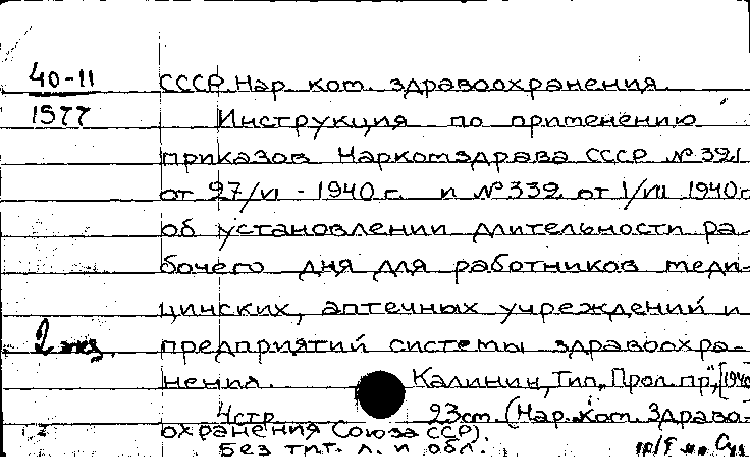 40-11
1577
СССР. Нар. ком. здравоохранения.
Инструкция по применению
приказов Наркомздрава СССР № 321
от 27/VI - 1940 г. и № 339 от 1/VII 1940 г
об установлении длительности ра-
бочего дня для работников меди-
цинских, аптечных учреждений и
2 экз. предприятий системы здравоохра-
нения. Калинин, Тип. „Прол. пр.", [1940
4 стр. 23 см. (Нар. ком. Здраво-
охранения Союза ССР).
Без тит. л. и обл.